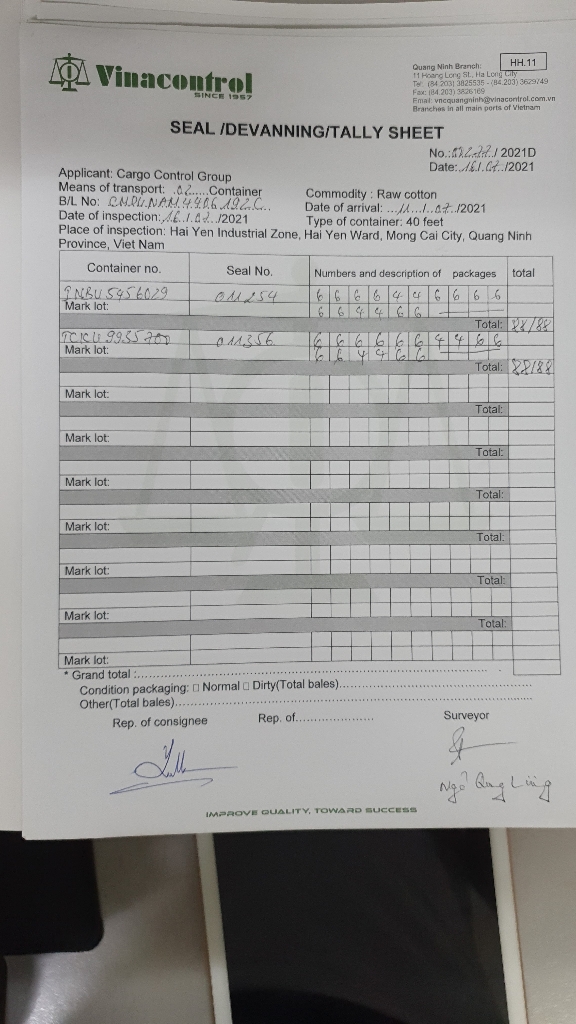 Vinacontrol
SINCE 1957
HH.11
Quang Ninh Branch:
11 Hoang Long St., Ha Long City
Tel: (84.203) 3825535 - (84.203) 3629749
Fax: (84.203) 3826169
Email: vncquangninh@vinacontrol.com.vn
Branches in all main ports of Vietnam
SEAL /DEVANNING/TALLY SHEET
No.: / 2021D
Date: 16/.07../2021
Applicant: Cargo Control Group
Means of transport: .02......Container
Commodity : Raw cotton
B/L No:
Date of arrival: ...11.../..07../2021
Date of inspection: 16./.07../2021
Type of container: 40 feet
Place of inspection: Hai Yen Industrial Zone, Hai Yen Ward, Mong Cai City, Quang Ninh
Province, Viet Nam
Container no. Seal No. Numbers and description of packages total
011254 6 6 6 6 4 4 6 6 6 6
Mark lot: 6 6 4 4 6 6
Total: 88/88
011356 6 6 6 6 6 6 4 4 6 6
Mark lot: 6 6 4 4 6 6
Total: 88/88
Mark lot:
Total:
Mark lot:
Total:
Mark lot:
Total:
Mark lot:
Total:
Mark lot:
Total:
Mark lot:
Total:
Mark lot:
* Grand total :
Condition packaging: □ Normal □ Dirty(Total bales)
Other(Total bales)
Rep. of consignee Rep. of Surveyor
IMPROVE QUALITY, TOWARD SUCCESS